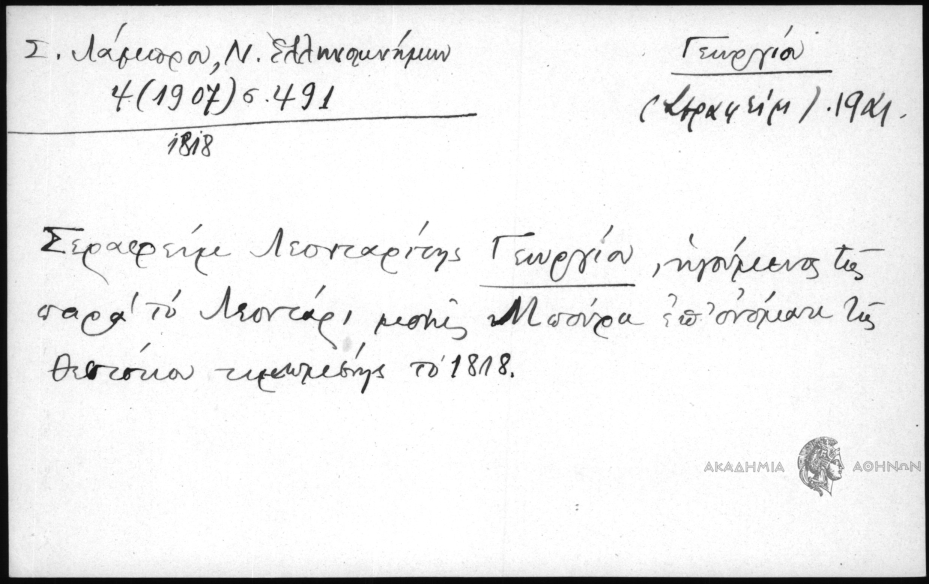 Σ. Λάμπρου, Ν. Ἑλληνομνήμων
4 (1907) σ. 491
1818
Γεωργίου
(Σεραφείμ)
Σεραφείμ Λεονταρίτης Γεωργίου, ἡγούμενος τῆς
παρά τό Λεοντάρι μονῆς Μπούρα ἐπ' ὀνόματι τῆς
Θεοτόκου τιμωμένης τό 1818.
ΑΚΑΔΗΜΙΑ ΑΘΗΝΩΝ